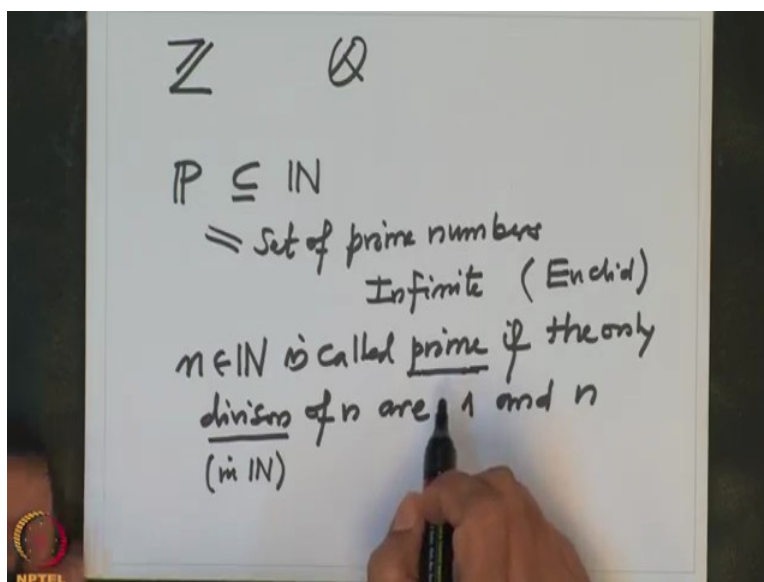 ℤ ℚ
ℙ ⊆ ℕ
= Set of prime numbers
Infinite (Euclid)
n ∈ ℕ is called prime if the only
divisors of n are 1 and n
(in ℕ)
NPTEL